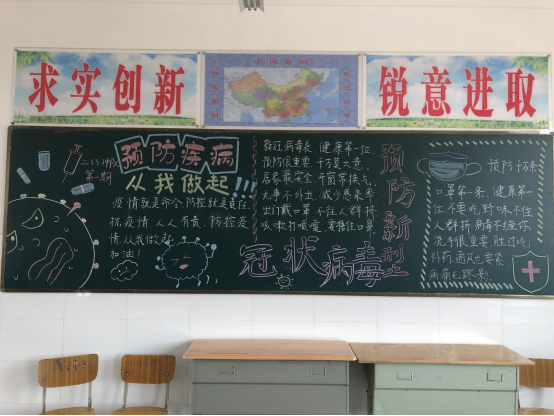 求实创新
中国地图
锐意进取
第一期
预防疾病
从我做起!!!
疫情就是命令,防控就是责任,
抗疫情,人人有责、防控疫
情,从我做起
加油!
新冠病毒丧 健康第一位
预防很重要 千万莫大意
居家最安全 开窗常换气
无事不外出 减少感染率
出门戴口罩 不往人群挤
咳嗽打喷嚏 要捂住口鼻
预防新型
冠状病毒
预防十条
口罩第一条、健康第一
位不要吃野味不往
人群挤 病毒不缠你
洗手很重要 胜过吃
补药通风也要紧
病菌无踪影